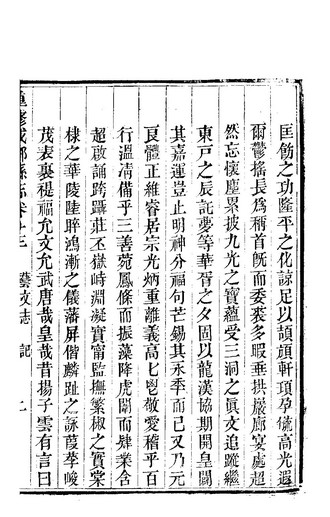 匡飭之功隆平之化諒足以頡頏軒頊孕毓高光遐
爾鬱搖長爲稱首旣而委裘多暇垂拱巖廊宴處超
然忘懷塵累披九光之寶蘊受三洞之眞文追蹤繼
東戸之辰託夢等華胥之夕固以龍漢協期開皇闡
其嘉運豈止明神分福句芒錫其永季而已又乃元
良體正維睿居宗光炳重離義高匕鬯敬愛稽乎百
行溫凊備乎三善苑鳳條而振藻降虎闈而肆業含
超啟誦跨躡莊丕嶽峙淵凝實甯監撫繁椒之實棠
棣之華陵陸鴻漸之儀藩屏偕麟趾之詠葭莩峻
茂表裏褆福允文允武唐哉皇哉昔揚子雲有言曰
重修成都縣志卷十三 藝文志 記 七